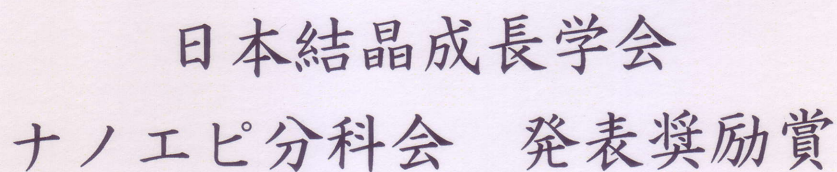 日本結晶成長学会
ナノエピ分科会　発表奨励賞